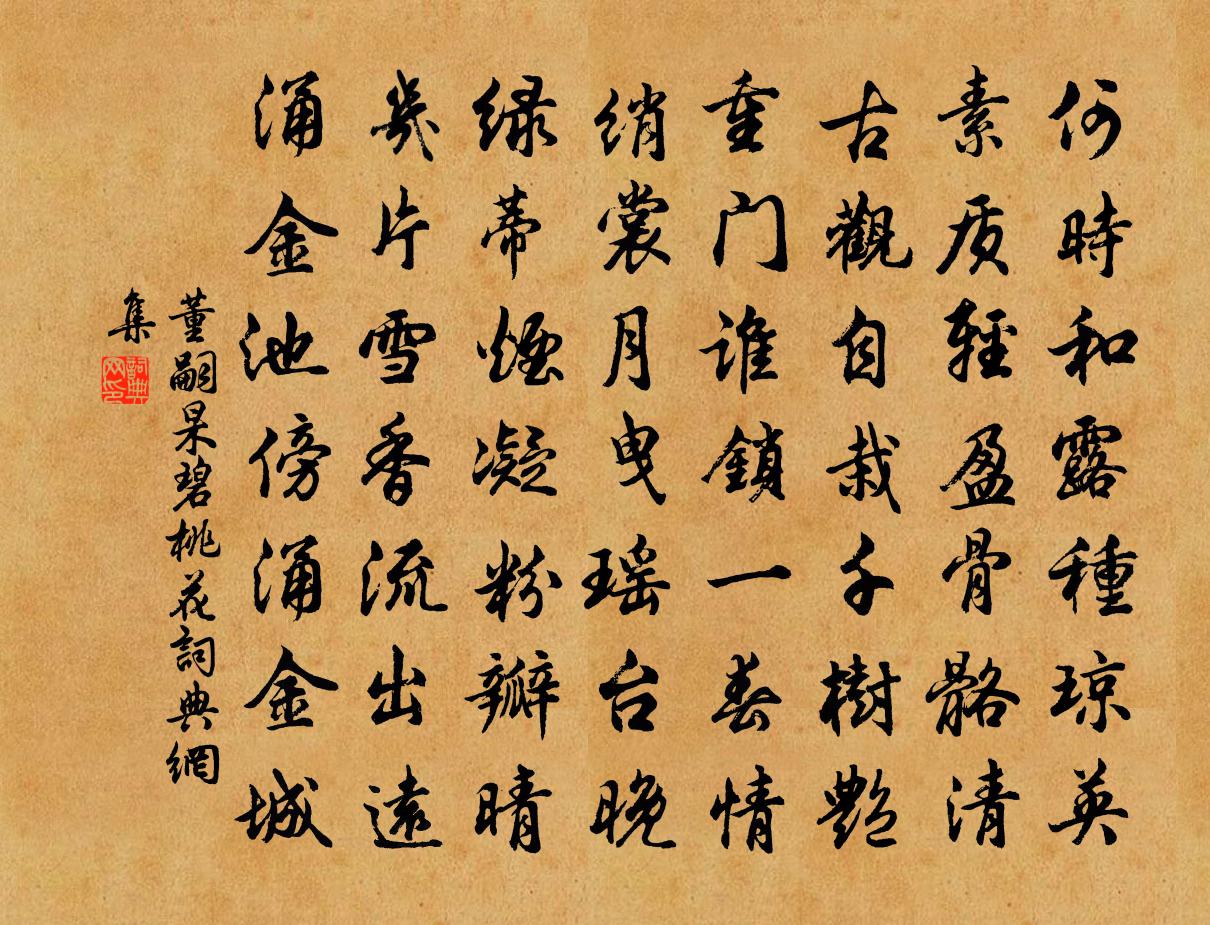 何時和露種琼英
素质輕盈骨骼清
古觀自栽千樹艷
重门谁鎖一春情
绡裳月曳瑶台晚
绿蒂煙凝粉瓣晴
幾片雪香流出遠
涌金池傍涌金城
董嗣杲碧桃花詞典網
集
詞典网印